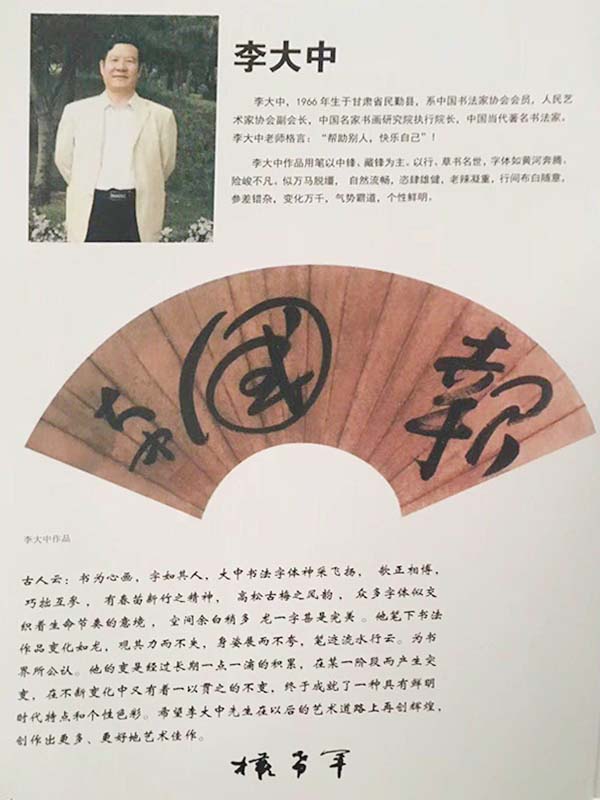 李大中
李大中，1966 年生于甘肃省民勤县，系中国书法家协会会员，人民艺
术家协会副会长，中国名家书画研究院执行院长，中国当代著名书法家。
李大中老师格言：“帮助别人，快乐自己”！
李大中作品用笔以中锋、藏锋为主。以行、草书名世，字体如黄河奔腾，
险峻不凡。似万马脱缰， 自然流畅，恣肆雄健，老辣凝重，行间布白随意，
参差错杂，变化万千，气势霸道，个性鲜明。
報國
李大中作品
古人云：书为心画，字如其人，大中书法字体神采飞扬， 欹正相搏，
巧拙互参 ，有春苗新竹之精神， 高松古梅之风韵 ，众多字体似交
织着生命节奏的意境 ， 空间余白稍多 龙一字甚是完美 。他笔下书法
作品变化如龙，观其力而不失，身姿展而不夸，笔迹流水行云。为书
界所公认。他的变是经过长期一点一滴的积累，在某一阶段而产生突
变，在不断变化中又有着一以贯之的不变，终于成就了一种具有鲜明
时代特点和个性色彩。希望李大中先生在以后的艺术道路上再创辉煌，
创作出更多、更好地艺术佳作。